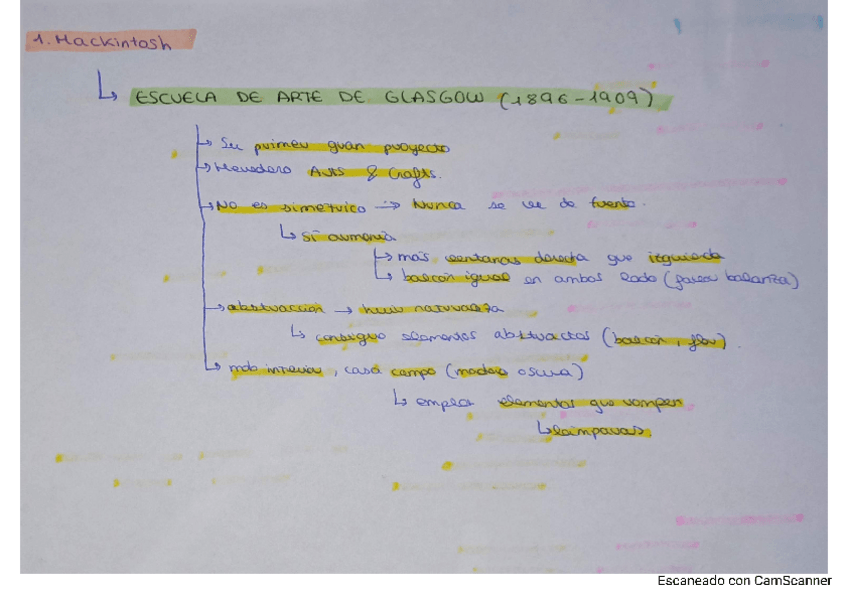 1. Mackintosh
↳ ESCUELA DE ARTE DE GLASGOW (1896-1909)
↳ Su primer gran proyecto
↳ Heredero Arts & Crafts.
↳ No es simétrico → Nunca se ve de frente.
↳ sí armonía
↳ más ventanas derecta que izquieda
↳ balcón igual en ambos lado (parea balanza)
↳ abstracción → huir naturaleza
↳ consigue elementos abstractos (balcón, flor)
↳ mob interior, casa campo (madera oscura)
↳ emplea elementos que rompen
↳ lámparas.
Escaneado con CamScanner